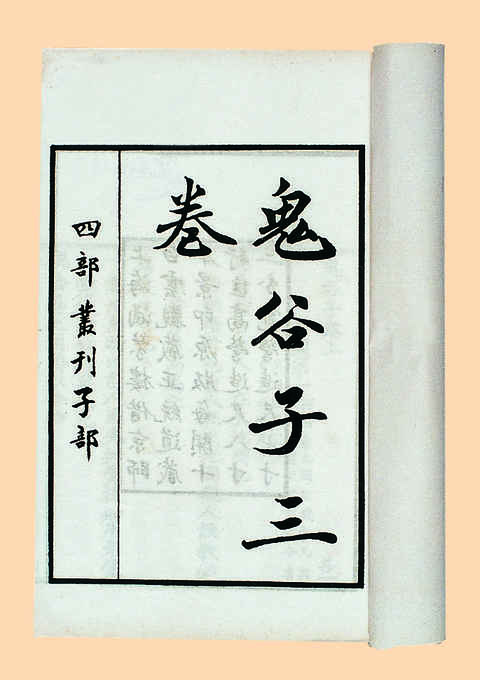 鬼谷子三
卷
四部叢刊子部